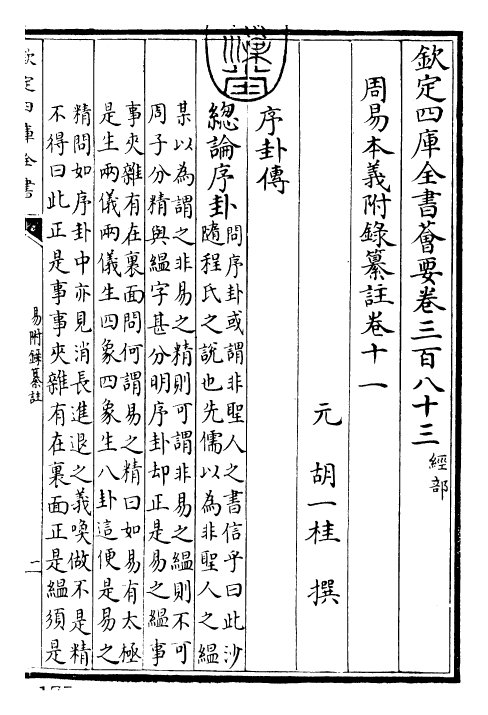 欽定四庫全書薈要卷三百八十三 經部
周易本義附錄纂註卷十一
元 胡一桂 撰
序卦傳
總論序卦
問序卦或謂非聖人之書信乎曰此沙
隨程氏之說也先儒以為非聖人之緼
某以為謂之非易之精則可謂非易之緼則不可
周子分精與緼字甚分明序卦却正是易之緼事
事夾雜有在裏面問何謂易之精曰如易有太極
是生兩儀兩儀生四象四象生八卦這便是易之
精問如序卦中亦見消長進退之義喚做不是精
不得曰此正是事事夾雜有在裏面正是緼須是
欽定四庫全書
易附錄纂註
二